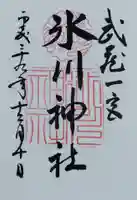 武蔵一宮
氷川神社
平成二十九年十二月十日